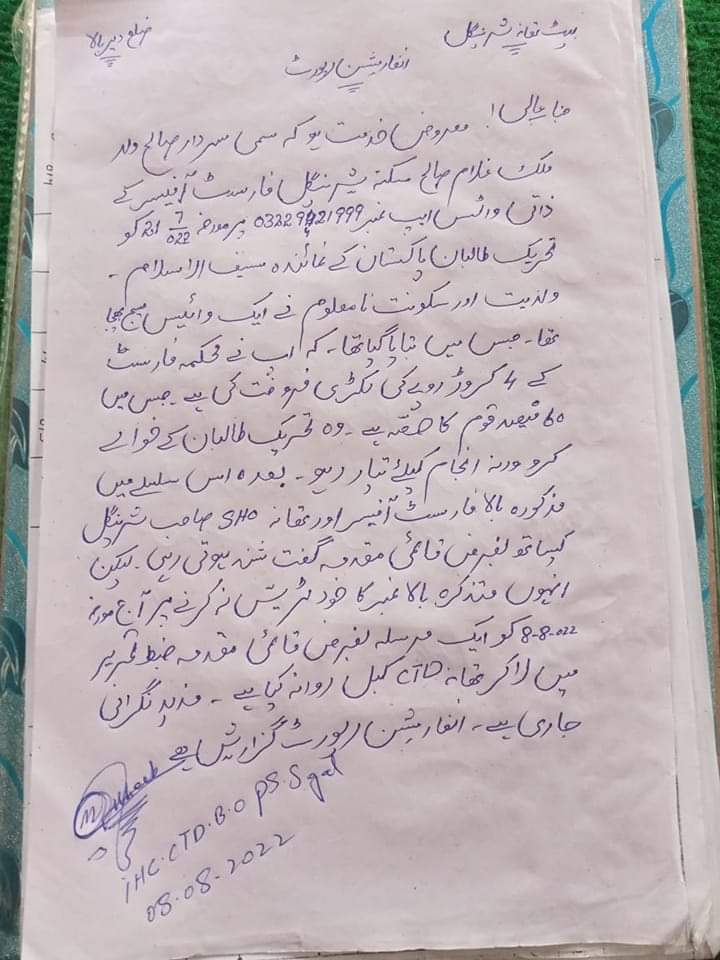 بیٹ تھانہ شرینگل
ضلع دیر بالا
انفارمیشن رپورٹ
جناب عالی! معروض خدمت ہو کہ سمی سردار صالح ولد
ملک غلام صالح سکنہ شرینگل فارسٹ آفیسر کے
ذاتی واٹس ایپ نمبر پر مورخہ 7/022 کو
تحریک طالبان پاکستان کے نمائندہ سیف الاسلام ۔
ولدیت اور سکونت نامعلوم نے ایک وائیس میسج بھیجا
تھا ۔ جس میں بتایا گیا تھا ۔ کہ اپ نے محکمہ فارسٹ
کے 4 کروڑ روپے کی لکڑی فروخت کی ہے ۔ جس میں
60 فیصد قوم کا حصّہ ہے ۔ وہ تحریک طالبان کے حوالے
کرو ورنہ انجام کیلئے تیار رہو ۔ بعدہ اس سلسلے میں
مذکورہ بالا فارسٹ آفیسر اور تھانہ SHO صاحب شرینگل
کیساتھ بغرض قائمی مقدمہ گفت شند ہوتی رہی ۔ لیکن
انہوں متذکرہ بالا نمبر کا خود ٹریس نہ کرنے پر آج مورخہ
8-8-022 کو ایک مرسلہ بغرض قائمی مقدمہ ضبط تحریر
میں لاکر تھانہ CTD کبل روانہ کیا ہے ۔ مزید نگرانی
جاری ہے ۔ انفارمیشن رپورٹ گزارش ہے
IHC.CTD.B.O PS.Sgal
08.08.2022